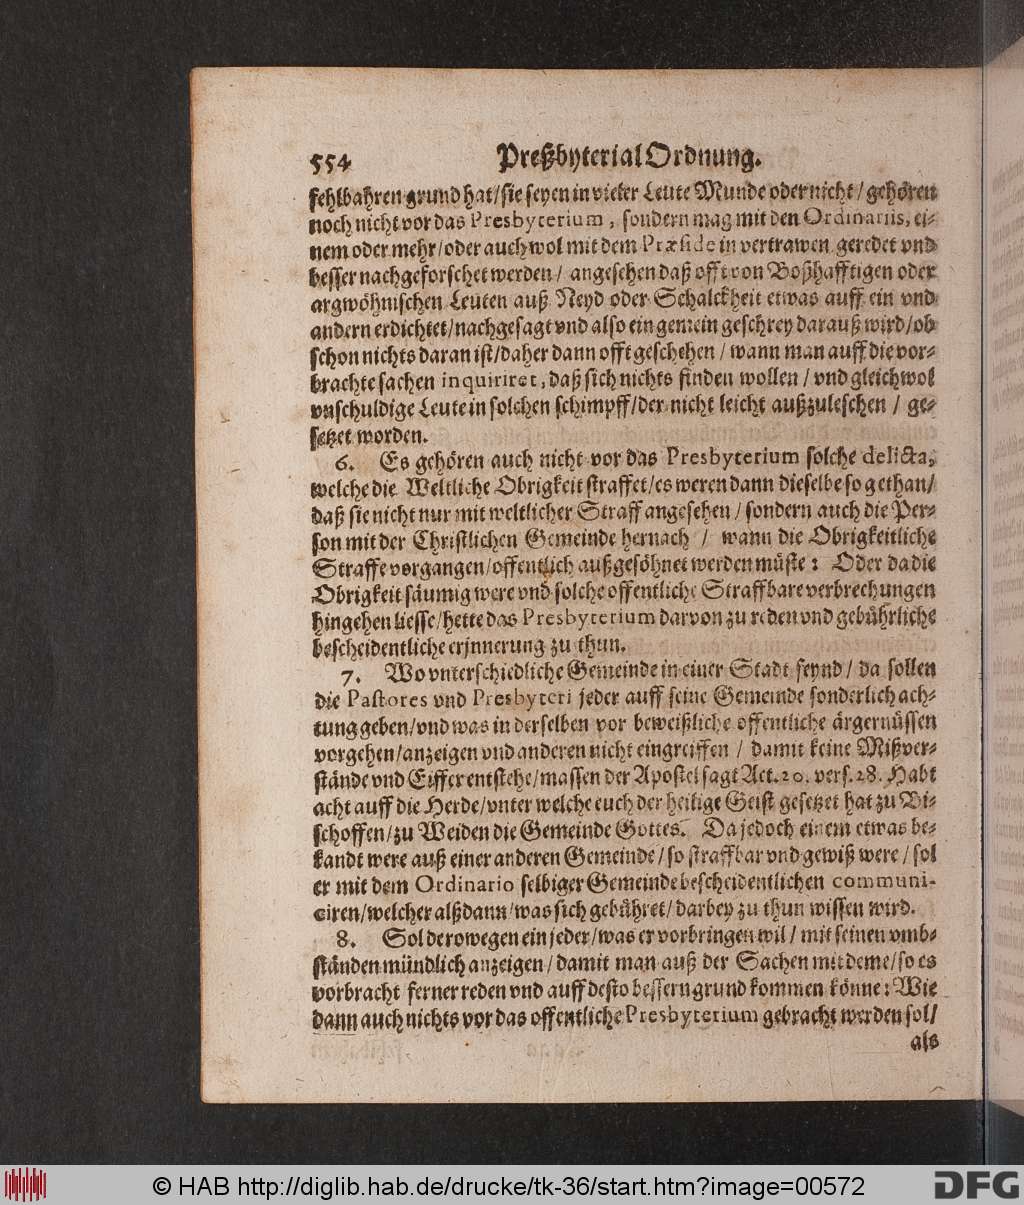 554 Preßbyterial Ordnung.
fehlbahren grund hat/sie seyen in vieler Leute Munde oder nicht/gehören
noch nicht vor das Presbyterium, sondern mag mit den Ordinariis, ei-
nem oder mehr/oder auch wol mit dem Præside in vertrawen geredet vnd
besser nachgeforschet werden/ angesehen daß offt von Boßhafftigen oder
argwöhnischen Leuten auß Neyd oder Schalckheit etwas auff ein vnd
andern erdichtet/nachgesagt vnd also ein gemein geschrey darauß wird/ob
schon nichts daran ist/daher dann offt geschehen/ wann man auff die vor-
brachte sachen inquiriret, daß sich nichts finden wollen/ vnd gleichwol
vnschuldige Leute in solchen schimpff/der nicht leicht außzuleschen / ge-
setzet worden.
6. Es gehören auch nicht vor das Presbyterium solche delicta,
welche die Weltliche Obrigkeit straffet/es weren dann dieselbe so gethan/
daß sie nicht nur mit weltlicher Straff angesehen/ sondern auch die Per-
son mit der Christlichen Gemeinde hernach / wann die Obrigkeitliche
Straffe vorgangen/offentlich außgesöhnet werden müste: Oder da die
Obrigkeit säumig were vnd solche offentliche Straffbare verbrechungen
hingehen liesse/hette das Presbyterium darvon zu reden vnd gebührliche
bescheidentliche erjnnerung zu thun.
7. Wo vnterschiedliche Gemeinde in einer Stadt seynd/ da sollen
die Pastores vnd Presbyteri jeder auff seine Gemeinde sonderlich ach-
tung geben/vnd was in derselben vor beweißliche offentliche ärgernüssen
vorgehen/anzeigen vnd anderen nicht eingreiffen/ damit keine Mißver-
stände vnd Eiffer entstehe/massen der Apostel sagt Act. 20. vers. 28. Habt
acht auff die Herde/vnter welche euch der heilige Geist gesetzet hat zu Bi-
schoffen/zu Weiden die Gemeinde Gottes. Da jedoch einem etwas be-
kandt were auß einer anderen Gemeinde/so straffbar vnd gewiß were/ sol
er mit dem Ordinario selbiger Gemeinde bescheidentlichen communi-
ciren/welcher alßdann/was sich gebühret/darbey zu thun wissen wird.
8. Sol derowegen ein jeder/was er vorbringen wil/ mit seinen vmb-
ständen mündlich anzeigen/damit man auß der Sachen mit deme/so es
vorbracht ferner reden vnd auff desto bessern grund kommen könne: Wie
dann auch nichts vor das offentliche Presbyterium gebracht werden sol/
als
© HAB http://diglib.hab.de/drucke/tk-36/start.htm?image=00572
DFG